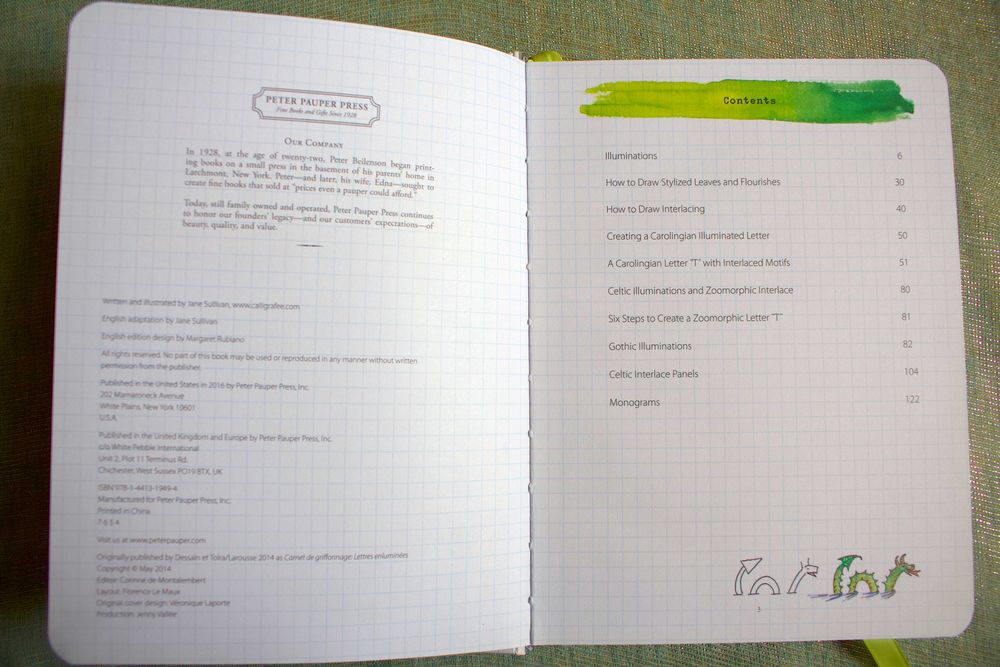 PETER PAUPER PRESS
Fine Books and Gifts Since 1928
OUR COMPANY
In 1928, at the age of twenty-two, Peter Beilenson began print-
ing books on a small press in the basement of his parents' home in
Larchmont, New York. Peter—and later, his wife, Edna—sought to
create fine books that sold at "prices even a pauper could afford."
Today, still family owned and operated, Peter Pauper Press continues
to honor our founders' legacy—and our customers' expectations—of
beauty, quality, and value.
Written and illustrated by Jane Sullivan, www.calligrafee.com
English adaptation by Jane Sullivan
English edition design by Margaret Rubiano
All rights reserved. No part of this book may be used or reproduced in any manner without written
permission from the publisher.
Published in the United States in 2016 by Peter Pauper Press, Inc.
202 Mamaroneck Avenue
White Plains, New York 10601
U.S.A.
Published in the United Kingdom and Europe by Peter Pauper Press, Inc.
c/o White Pebble International
Unit 2, Plot 11 Terminus Rd.
Chichester, West Sussex PO19 8TX, UK
ISBN 978-1-4413-1949-4
Manufactured for Peter Pauper Press, Inc.
Printed in China
7 6 5 4
Visit us at www.peterpauper.com
Originally published by Dessain et Tolra/Larousse 2014 as Carnet de griffonnage: Lettres enluminées
Copyright © May 2014
Editor: Corinne de Montalembert
Layout: Florence Le Maux
Original cover design: Véronique Laporte
Production: Jenny Vallée
Contents
Illuminations 6
How to Draw Stylized Leaves and Flourishes 30
How to Draw Interlacing 40
Creating a Carolingian Illuminated Letter 50
A Carolingian Letter "T" with Interlaced Motifs 51
Celtic Illuminations and Zoomorphic Interlace 80
Six Steps to Create a Zoomorphic Letter "T" 81
Gothic Illuminations 82
Celtic Interlace Panels 104
Monograms 122
3